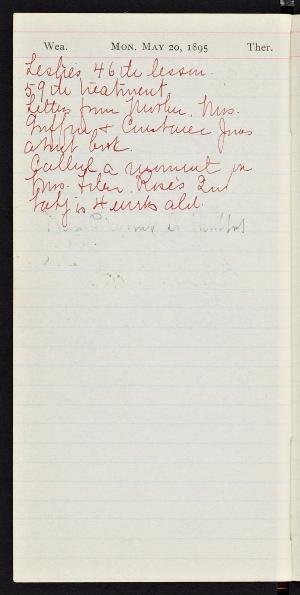 Wea. MON. MAY 20, 1895 Ther.
Leslie's 46th lesson.
59th treatment.
Letters from Mother, Mrs.
& Constance
about book.
Called a moment on
Mrs. Rose's 2nd
baby is 4 weeks old.